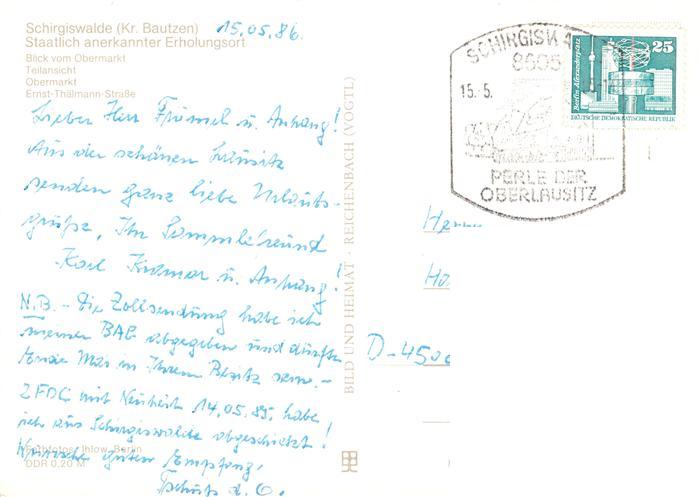 Schirgiswalde (Kr. Bautzen)
Staatlich anerkannter Erholungsort
Blick vom Obermarkt
Teilansicht
Obermarkt
Ernst-Thälmann-Straße
15.05.86.
Lieber Herr Frömel u. Anhang!
Aus der schönen Lausitz
senden ganz liebe Urlaubs-
grüße, Ihr Sammlerfreund
Karl u. Anhang!
N.B. - Die Zollsendung habe ich
meiner BAG abgegeben und dürfte
Ende Mai in Ihrem Besitz sein. -
2 FDC mit Neuheit 14.05.85, habe
ich aus Schirgiswalde abgeschickt!
Wünsche guten Empfang,
d. O.
Farbfotos: Ihlow, Berlin
DDR 0,20 M
BILD UND HEIMAT · REICHENBACH (VOGTL)
SCHIRGISWA
8605
15.5.
PERLE DER
OBERLAUSITZ
25
Berlin, Alexanderplatz
DEUTSCHE DEMOKRATISCHE REPUBLIK
D-4500